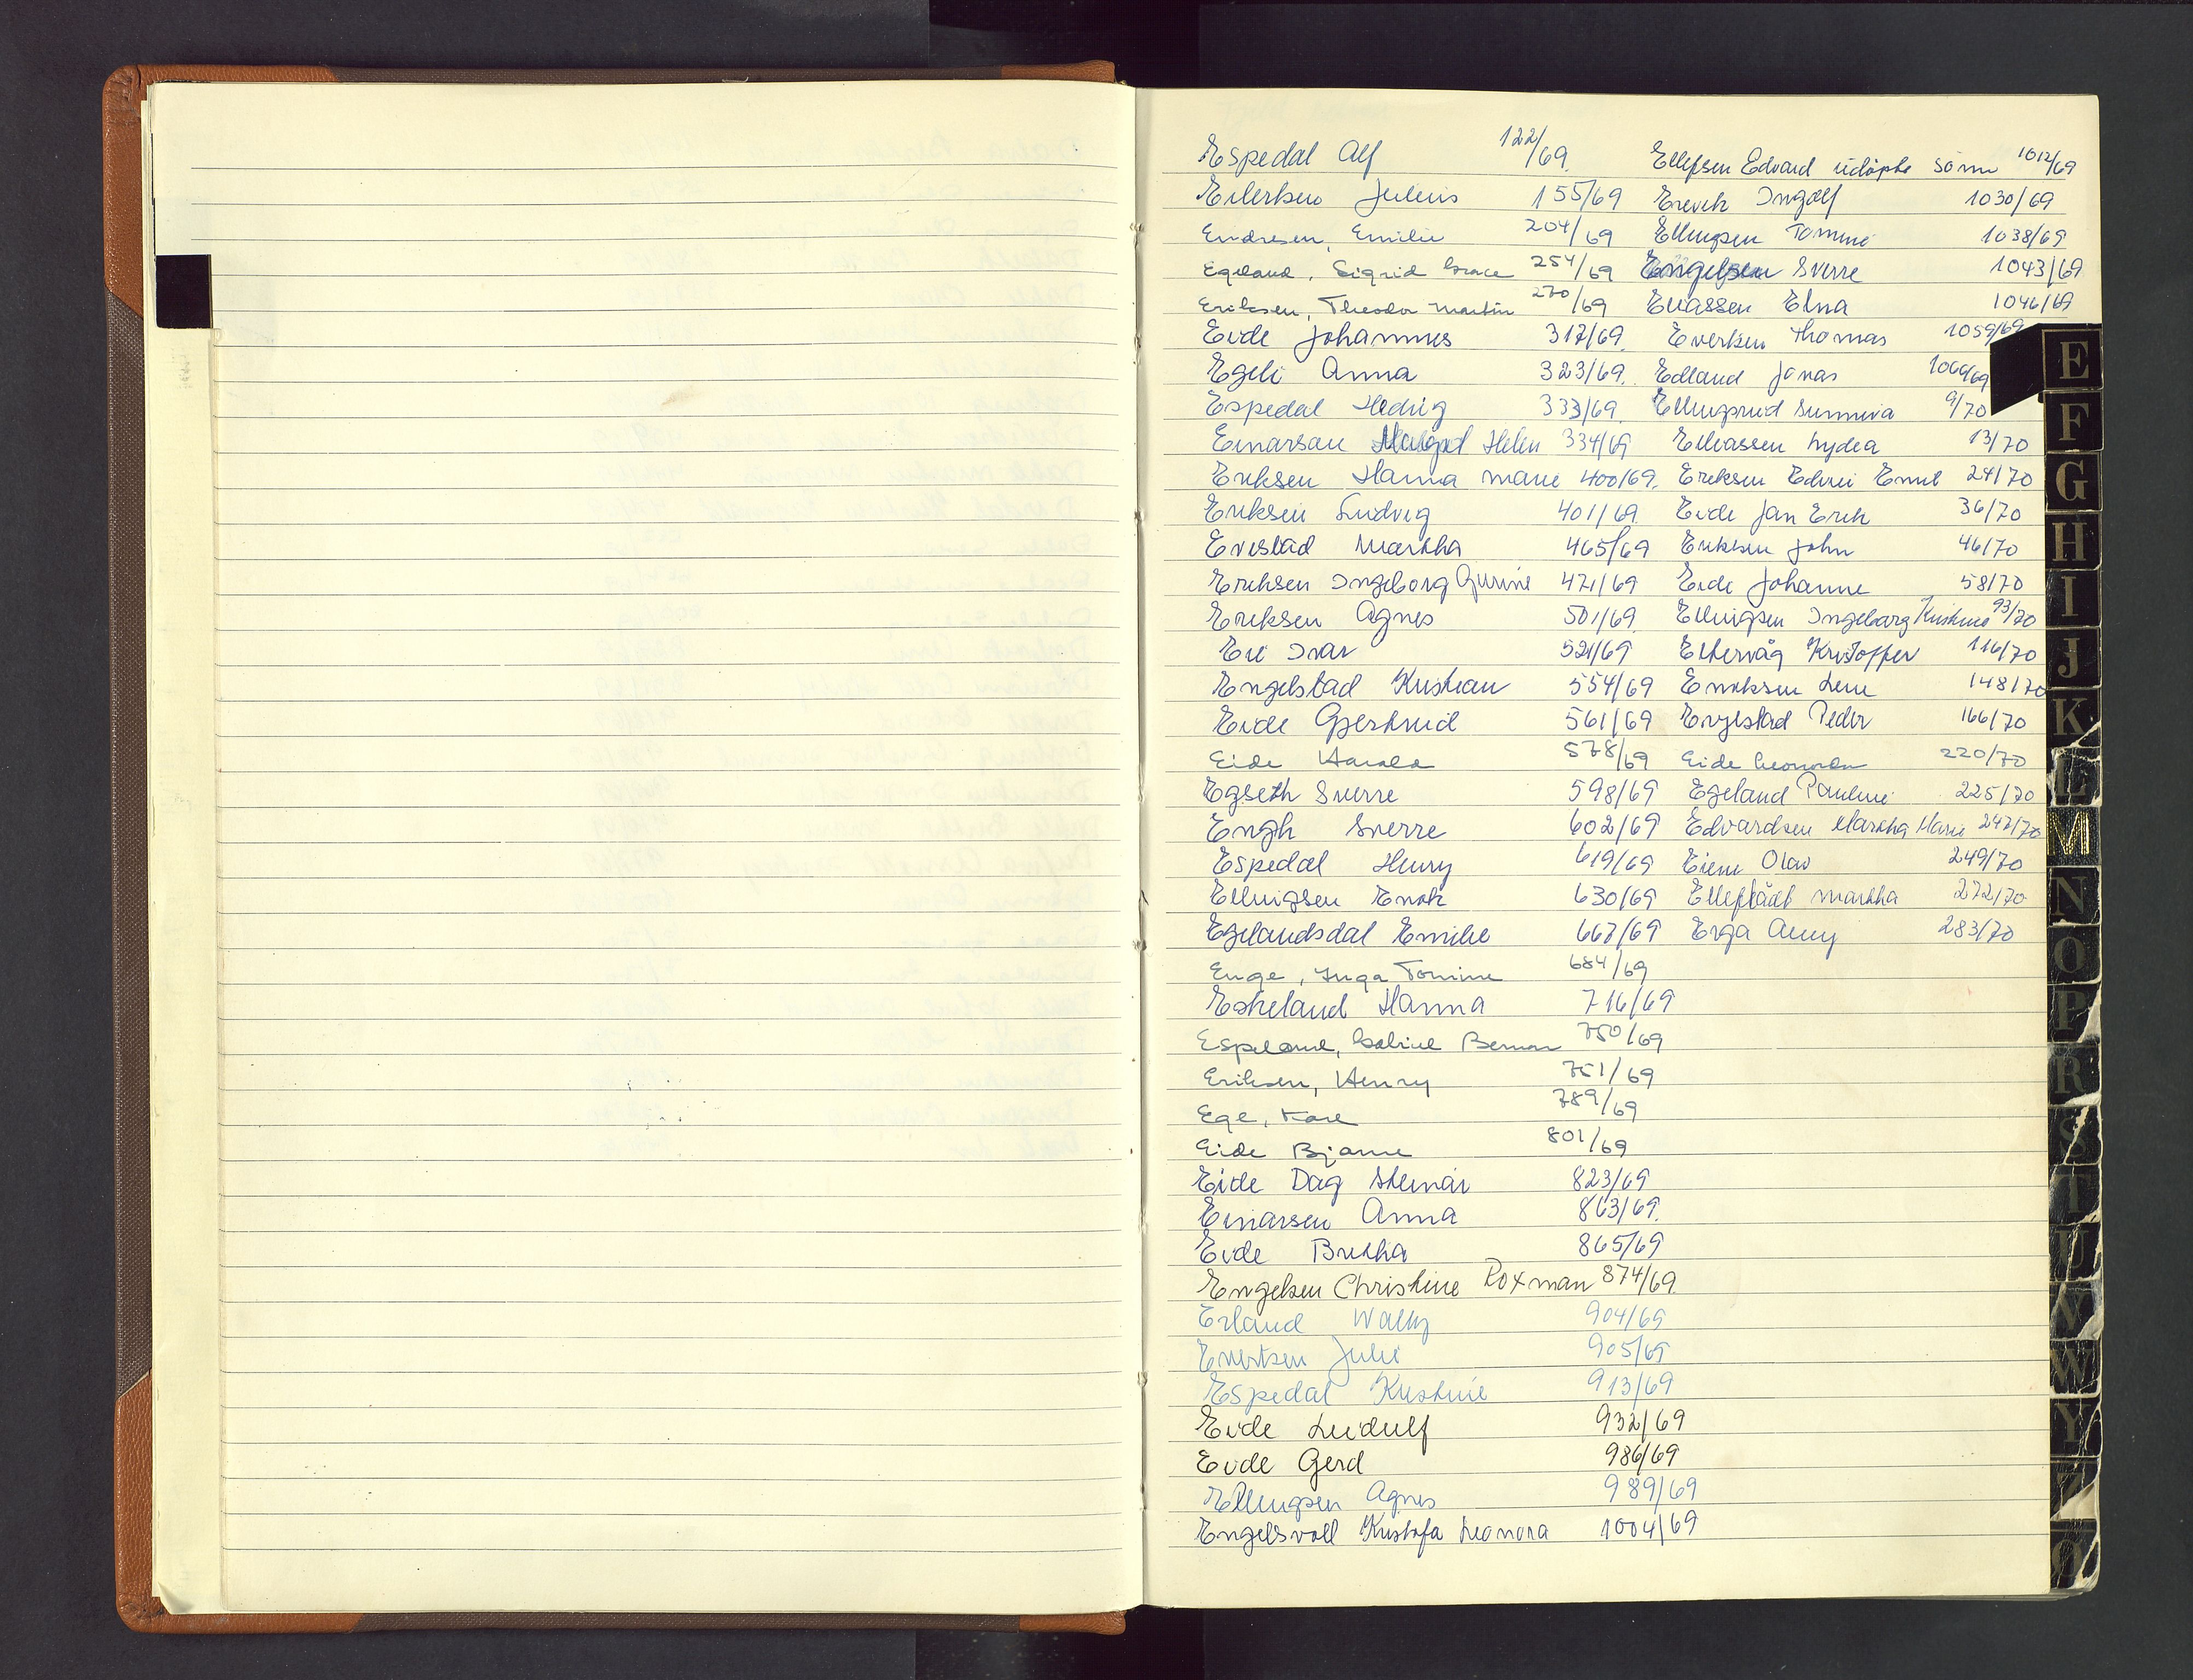 Espedal Alf 122/69.
Eilertsen Julius 155/69
Endresen, Emilie 204/69
Egeland, Sigrid Grace 254/69
Eriksen, Theodor Martin 270/69
Eide Johannes 317/69.
Egeli Anna 323/69.
Espedal Hedvig 333/69.
Einarsen Helen 334/69
Eriksen Hanna Marie 400/69.
Eriksen Ludvig 401/69.
Evestad Martha 465/69
Eriksen Ingeborg Gurine 471/69
Eriksen Agnes 501/69.
Eie Ivar 521/69
Engelstad Kristian 554/69
Eide Gjertrud 561/69
Eide Harald 578/69
Egseth Sverre 598/69
Engh Sverre 602/69
Espedal Henry 619/69
Ellingsen Enok 630/69
Egelandsdal Emilie 667/69
Enge, Inga Tomine 684/69
Eskeland Hanna 716/69
Espeland, Gabriel Berner 750/69
Eriksen, Henry 751/69
Ege, Kare 789/69
Eide Bjarne 801/69
Eide Dag Steinar 823/69
Einarsen Anna 863/69.
Eide Bertha 865/69
Engelsen Christine Roxman 874/69.
Erland Wally 904/69
Evertsen Julie 905/69
Espedal Kristine 913/69
Eide Leidulf 932/69
Eide Gerd 986/69
Ellingsen Agnes 989/69
Engelsvoll Kristofa Leonora 1004/69
Ellefsen Edvard udøpte sønn 1012/69
Ervik Ingolf 1030/69
Ellingsen Tomine 1038/69
Engelsen Sverre 1043/69
Eliassen Elna 1046/69
Evertsen Thomas 1059/69
Edland Jonas 1066/69
Ellingsrud Sunniva 9/70
Elleassen Lydia 13/70
Eriksen Edvin Emil 24/70
Eide Jan Erik 36/70
Eriksen John 46/70
Eide Johanne 58/70
Ellingsen Ingeborg Kristine 93/70
Eltervåg Kristoffer 116/70
Enoksen Lene 148/70
Engelstad Peder 166/70
Eide Leonora 220/70
Egeland Pauline 225/70
Edvardsen Martha Marie 247/70
Eiene Olav 249/70
Martha 272/70
Erga Anny 283/70
E
F
G
H
I
J
K
L
M
N
O
P
R
S
T
U
V
W
Y
Z
Ø